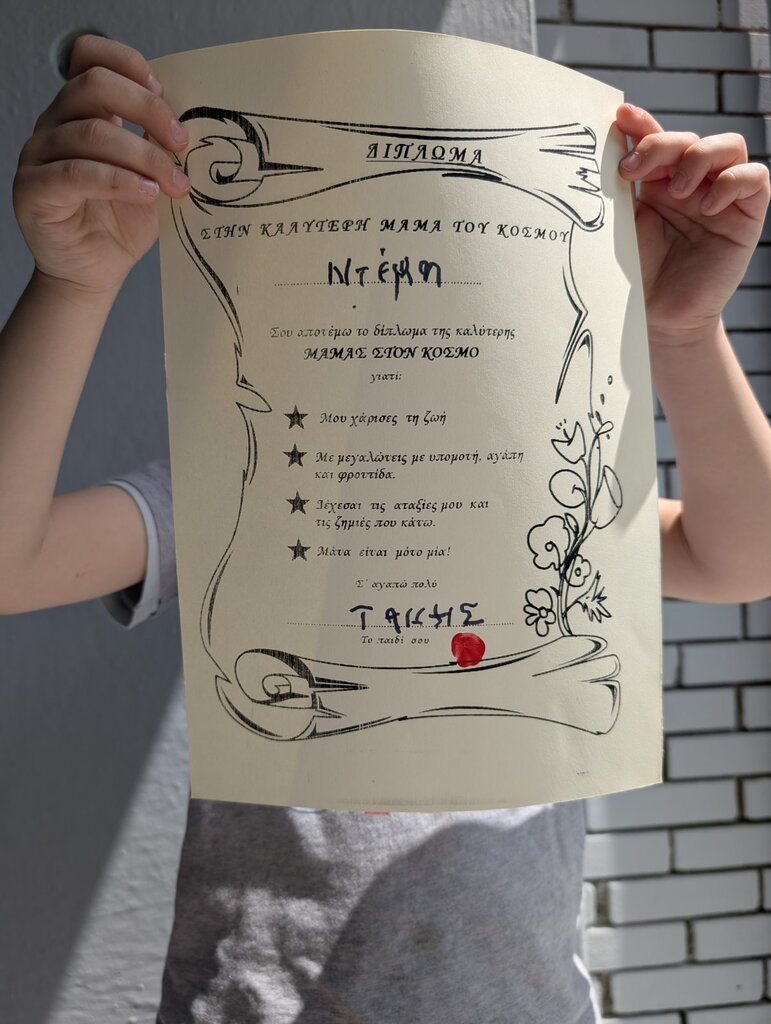 ΔΙΠΛΩΜΑ
ΣΤΗΝ ΚΑΛΥΤΕΡΗ ΜΑΜΑ ΤΟΥ ΚΟΣΜΟΥ
Ντέμη
Σου απονέμω το δίπλωμα της καλύτερης
ΜΑΜΑΣ ΣΤΟΝ ΚΟΣΜΟ
γιατί:
Μου χάρισες τη ζωή
Με μεγαλώνεις με υπομονή, αγάπη
και φροντίδα.
Δέχεσαι τις αταξίες μου και
τις ζημιές που κάνω.
Μάνα είναι μόνο μία!
Σ' αγαπώ πολύ
ΤΑΚΗΣ
Το παιδί σου